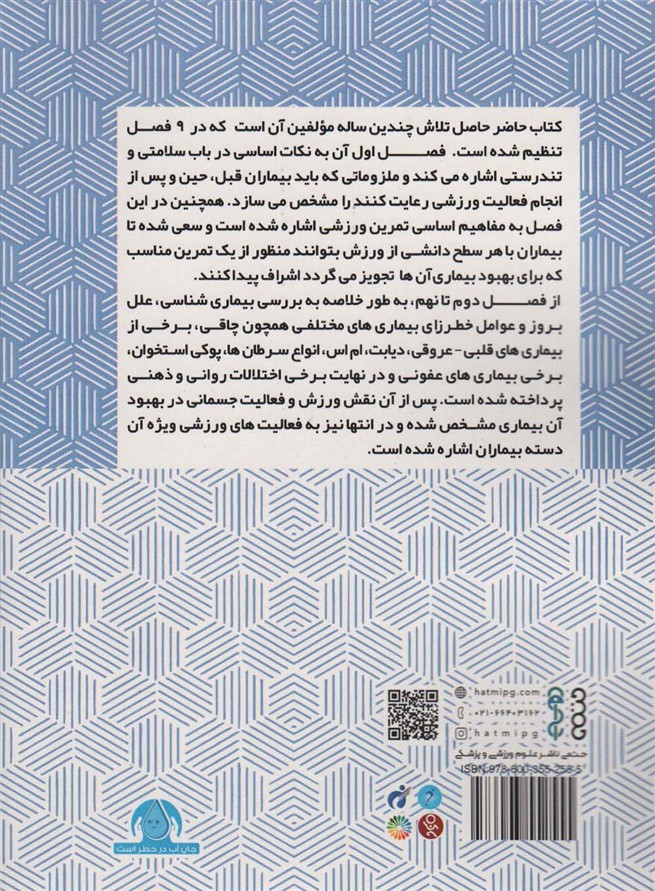 کتاب حاضر حاصل تلاش چندین ساله مؤلفین آن است که در ۹ فصل
تنظیم شده است. فصل اول آن به نکات اساسی در باب سلامتی و
تندرستی اشاره می کند و ملزوماتی که باید بیماران قبل، حین و پس از
انجام فعالیت ورزشی رعایت کنند را مشخص می سازد. همچنین در این
فصل به مفاهیم اساسی تمرین ورزشی اشاره شده است و سعی شده تا
بیماران با هر سطح دانشی از ورزش بتوانند منظور از یک تمرین مناسب
که برای بهبود بیماری آن ها تجویز می گردد اشراف پیدا کنند.
از فصل دوم تا نهم، به طور خلاصه به بررسی بیماری شناسی، علل
بروز و عوامل خطرزای بیماری های مختلفی همچون چاقی، برخی از
بیماری های قلبی - عروقی، دیابت، ام اس، انواع سرطان ها، پوکی استخوان،
برخی بیماری های عفونی و در نهایت برخی اختلالات روانی و ذهنی
پرداخته شده است. پس از آن نقش ورزش و فعالیت جسمانی در بهبود
آن بیماری مشخص شده و در انتها نیز به فعالیت های ورزشی ویژه آن
دسته بیماران اشاره شده است.
hatmipg.com
۰۲۱-۶۶۴۰۳۱۶۲
hatmipg
حتمی
حتمی ناشر علوم ورزشی و پزشکی
ISBN:978-600-355-258-5
جان آب در خطر است